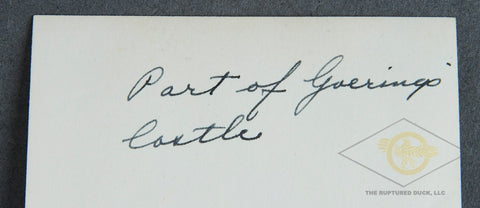 Part of Goering's
Castle
THE RUPTURED DUCK, LLC